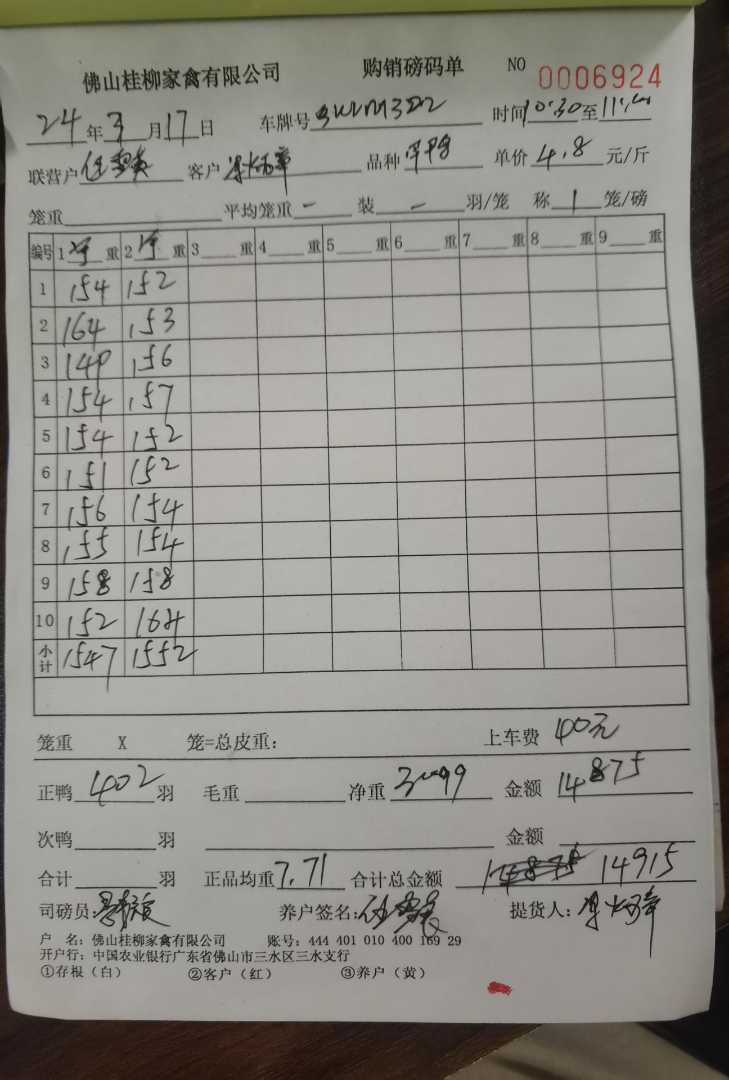 佛山桂柳家禽有限公司 购销磅码单 NO 0006924
24年3月17日 车牌号 时间10:30至11:00
联营户 客户 品种 单价4.8元/斤
笼重 平均笼重 — 装 — 羽/笼 称 1 笼/磅
编号 1 重 2 重 3 重 4 重 5 重 6 重 7 重 8 重 9 重
1 154 152
2 164 153
3 149 156
4 154 157
5 154 152
6 151 152
7 156 154
8 155 154
9 158 158
10 152 164
小计 1547 1552
笼重 X 笼=总皮重: 上车费 40元
正鸭 402 羽 毛重 净重 3099 金额 14875
次鸭 羽 金额
合计 羽 正品均重 7.71 合计总金额 14915
司磅员: 养户签名: 提货人:
户 名: 佛山桂柳家禽有限公司 账号: 444 401 010 400 169 29
开户行: 中国农业银行广东省佛山市三水区三水支行
①存根（白） ②客户（红） ③养户（黄）